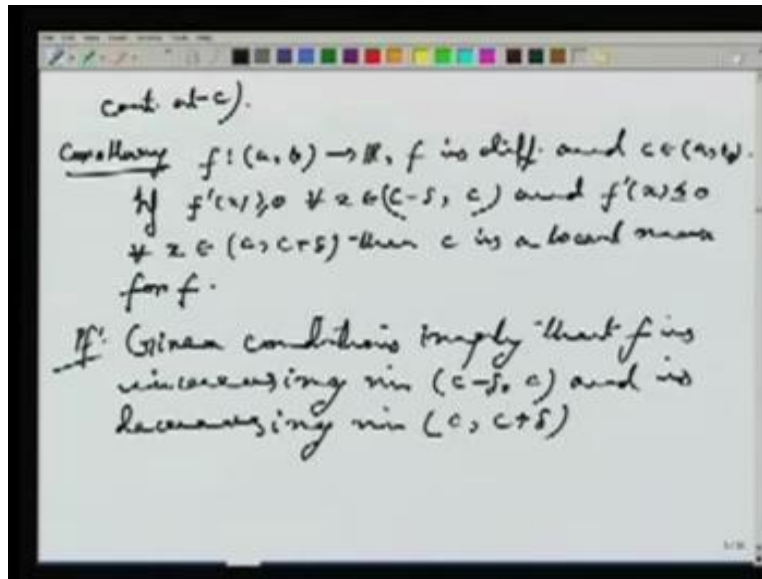 cont. at c).
Corollary f: (a, b) → ℝ, f is diff. and c ∈ (a, b).
If f'(x) ≥ 0 ∀ x ∈ (c-δ, c) and f'(x) ≤ 0
∀ x ∈ (c, c+δ) then c is a local max
for f.
Pf: Given conditions imply that f is
increasing in (c-δ, c) and is
decreasing in (c, c+δ)